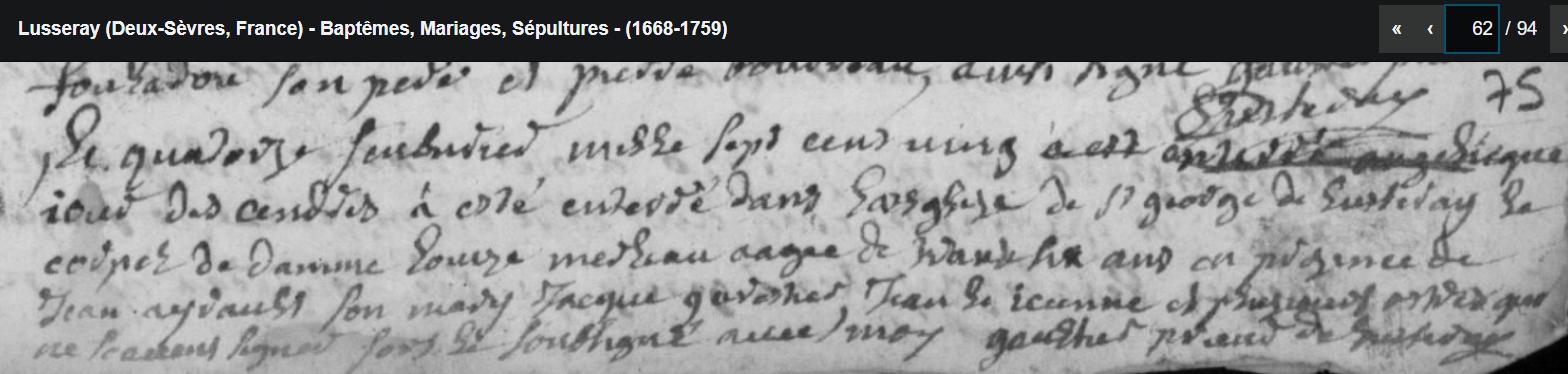 Lusseray (Deux-Sèvres, France) - Baptêmes, Mariages, Sépultures - (1668-1759)
« ‹ 62 / 94 ›
son pere et pierre ainsi signé
75
Le quatorze feubvrier mille sept cent ving a est enterré
jour des cendres à esté enterré dans lesglize de st george de Lusseray le
corps de damme Louize aagee de trante six ans en presence de
Jean ayrault son mary Jacque Jean le jeunne et plusieurs autres qui
ne scavent signer fors le soubsigné avec moy gauthier prieur de Lusseray